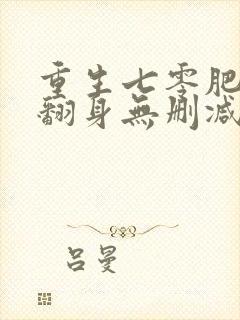 重生七零肥
翻身無删减
吕曼